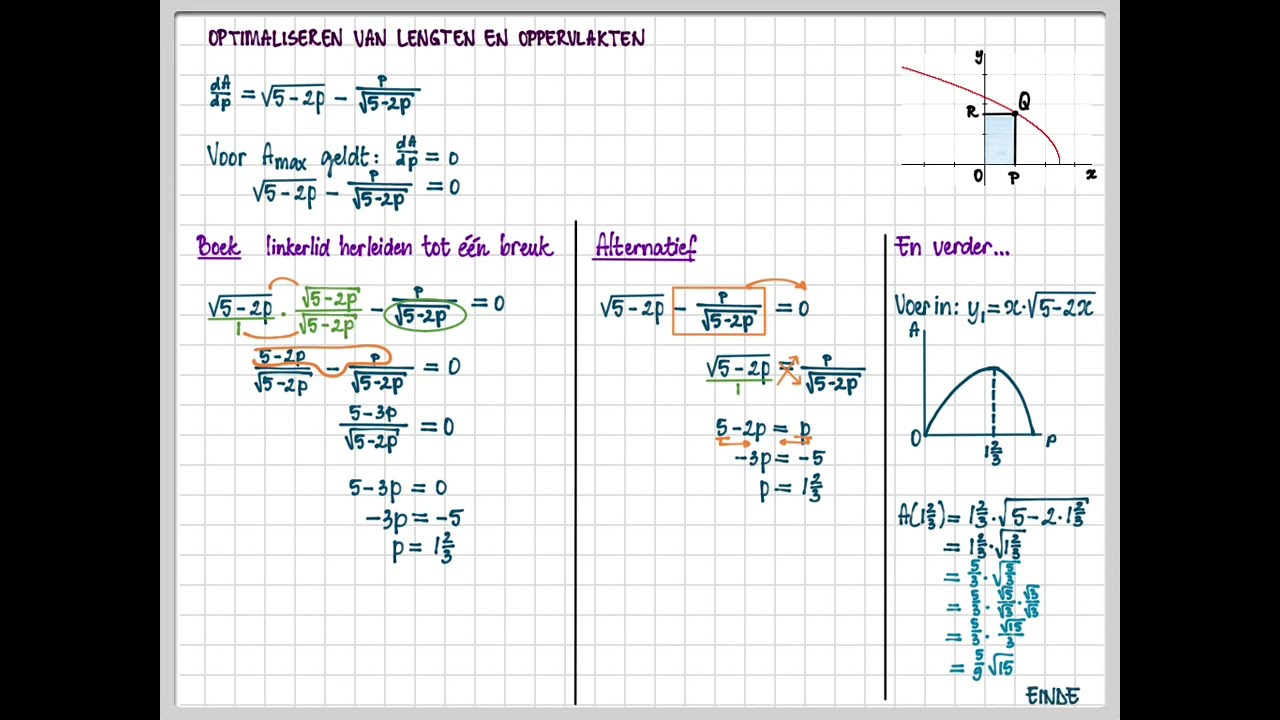 OPTIMALISEREN VAN LENGTEN EN OPPERVLAKTEN
dA/dp = √(5-2p) - p/√(5-2p)
Voor Amax geldt: dA/dp = 0
√(5-2p) - p/√(5-2p) = 0
y
R
Q
O
P
x
Boek linkerlid herleiden tot één breuk
√(5-2p)/1 · √(5-2p)/√(5-2p) - p/√(5-2p) = 0
(5-2p)/√(5-2p) - p/√(5-2p) = 0
(5-3p)/√(5-2p) = 0
5-3p = 0
-3p = -5
p = 1 2/3
Alternatief
√(5-2p) - p/√(5-2p) = 0
√(5-2p)/1 = p/√(5-2p)
5-2p = p
-3p = -5
p = 1 2/3
En verder...
Voer in: y₁ = x·√(5-2x)
A
O
1 2/3
p
A(1 2/3) = 1 2/3 · √(5-2·1 2/3)
= 1 2/3 · √(1 2/3)
= 5/3 · √(5/3)
= 5/3 · √5/√3 · √3/√3
= 5/3 · √15/3
= 5/9 √15
EINDE